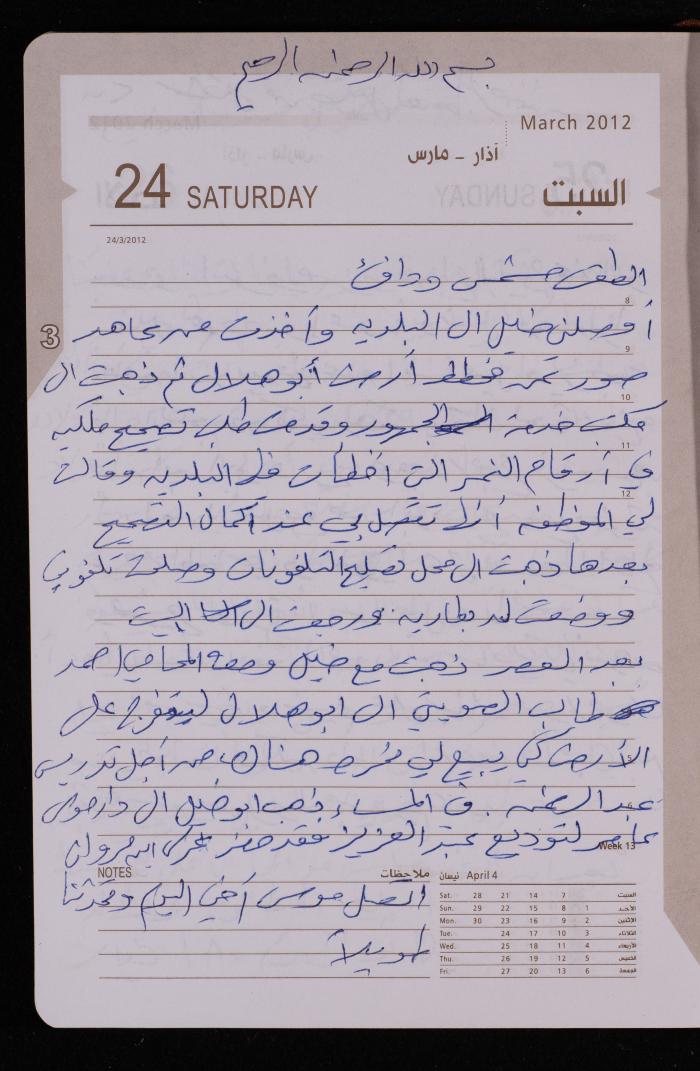 بسم الله الرحمن الرحيم
March 2012
آذار - مارس
24 SATURDAY السبت
24/3/2012
الطقس مشمس ودافئ
8
أوصلني خليل الى البلديه وأخذت من مجاهد
9
3
صور عن مخطط أرض أبو هلال ثم ذهبت الى
10
مكتب خدمة الجمهور وقدمت طلب تصحيح ملكيه
11
في أرقام النمر التي أخطأت في البلديه وقالت
12
لي الموظفه أن تتصل بي عند اكمال التصحيح
بعدها ذهبت الى محل تصليح التلفونات وصلحت تلفوني
ووضعت له بطاريه ورجعت الى البيت
بعد العصر ذهبت مع خليل ومعه المحامي احمد
طالب الصويتي الى ابو هلال ليتفرج على
الأرض كي يبيع لي هناك من أجل تدريس
عبد الرحمن . في المساء ذهب ابو خليل الى دار
لتوديع عبد العزيز فقد حضر
Week 13
NOTES ملاحظات
اتصل موسى أخي اليوم وتحدثنا
طويلاً
نيسان April 4
Sat. 28 21 14 7 السبت
Sun. 29 22 15 8 1 الأحد
Mon. 30 23 16 9 2 الإثنين
Tue. 24 17 10 3 الثلاثاء
Wed. 25 18 11 4 الأربعاء
Thu. 26 19 12 5 الخميس
Fri. 27 20 13 6 الجمعة